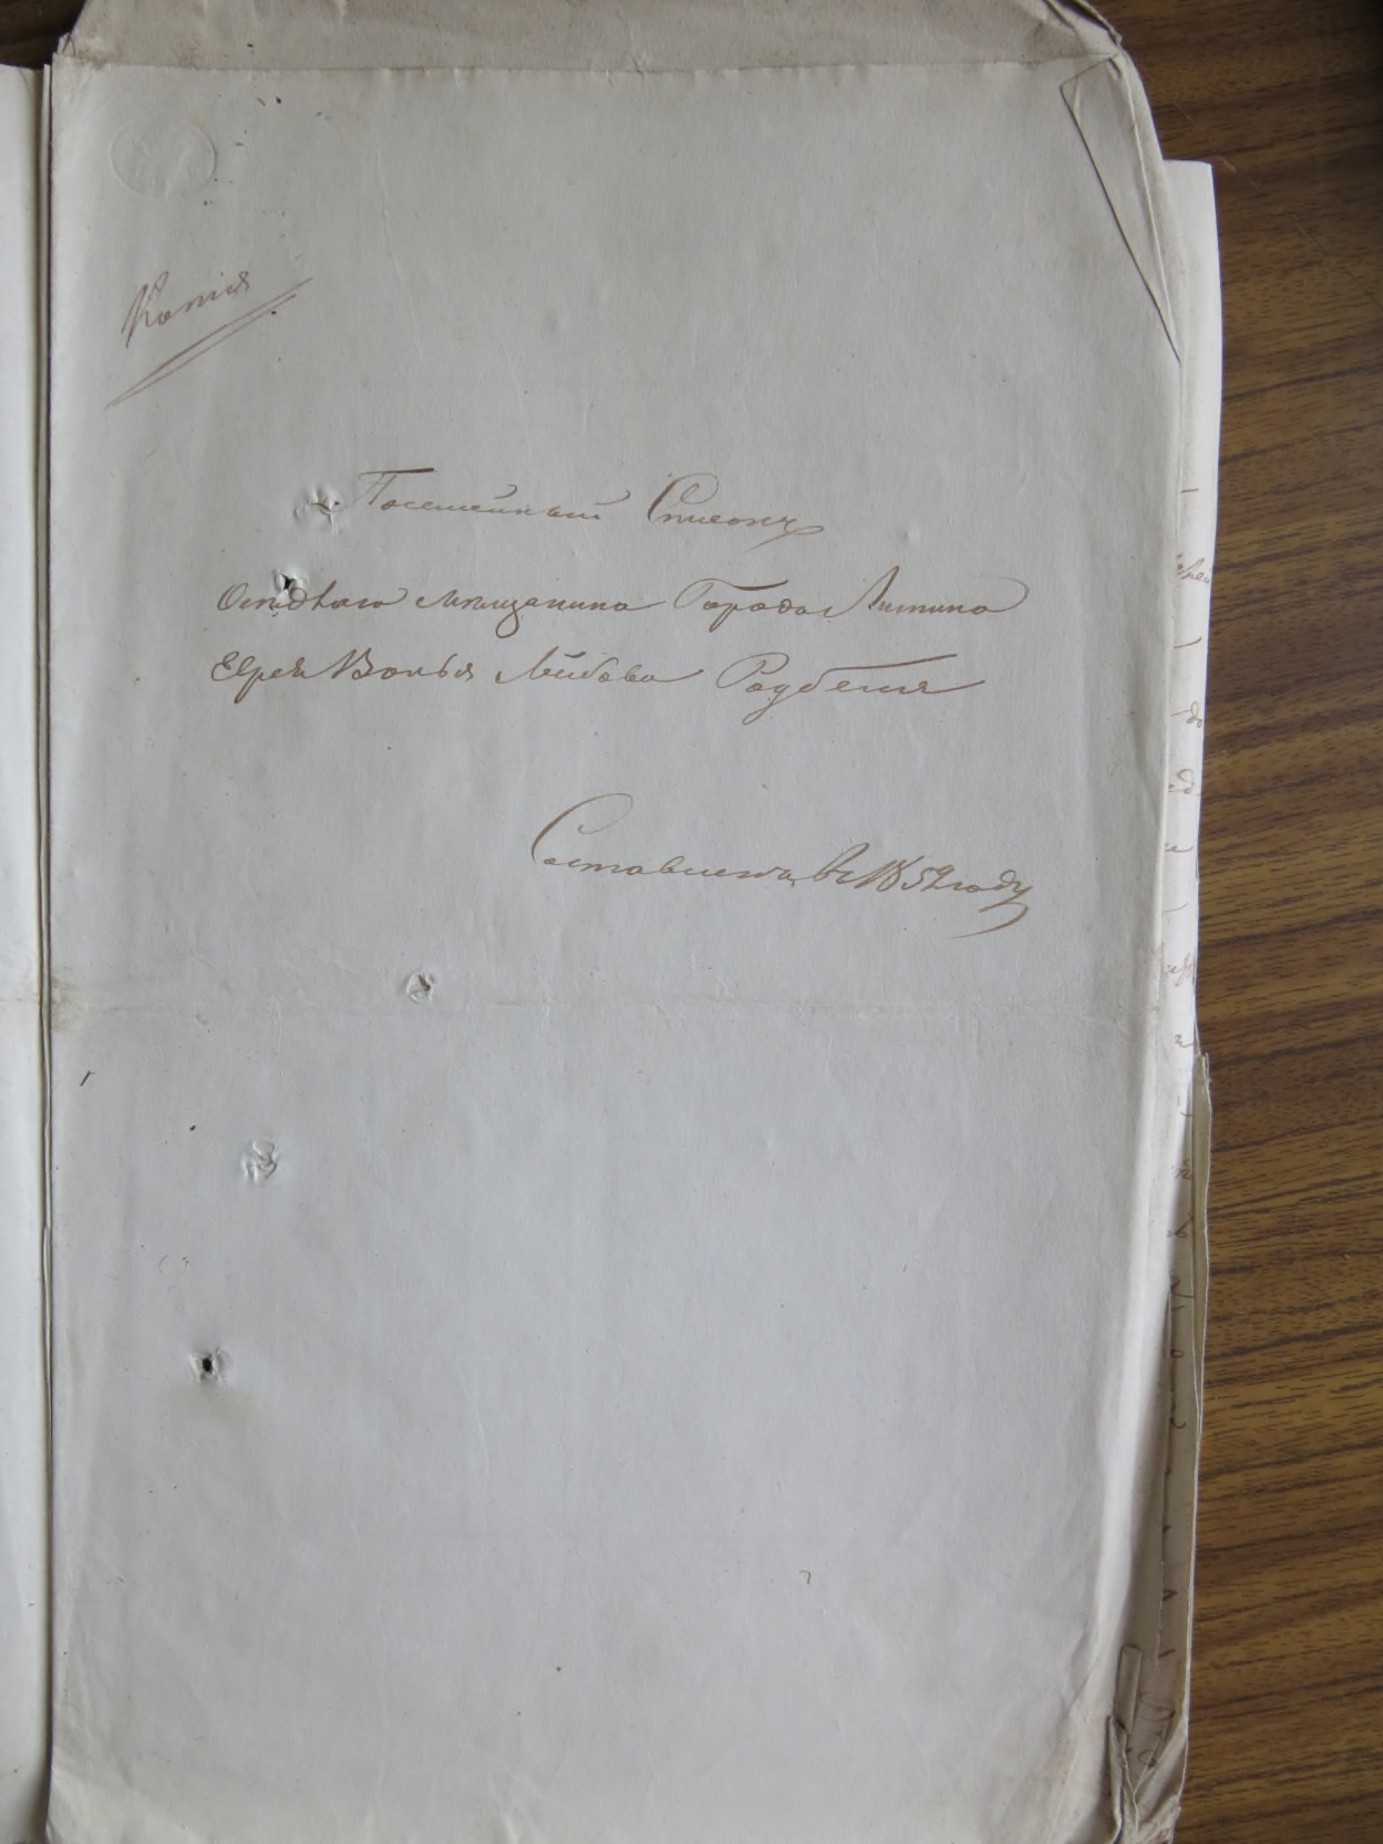 Копія
Посемейный Списокъ
Осѣдлаго мѣщанина Города Литина
Еврея Волька Лейбова
Составленъ въ 1859 году